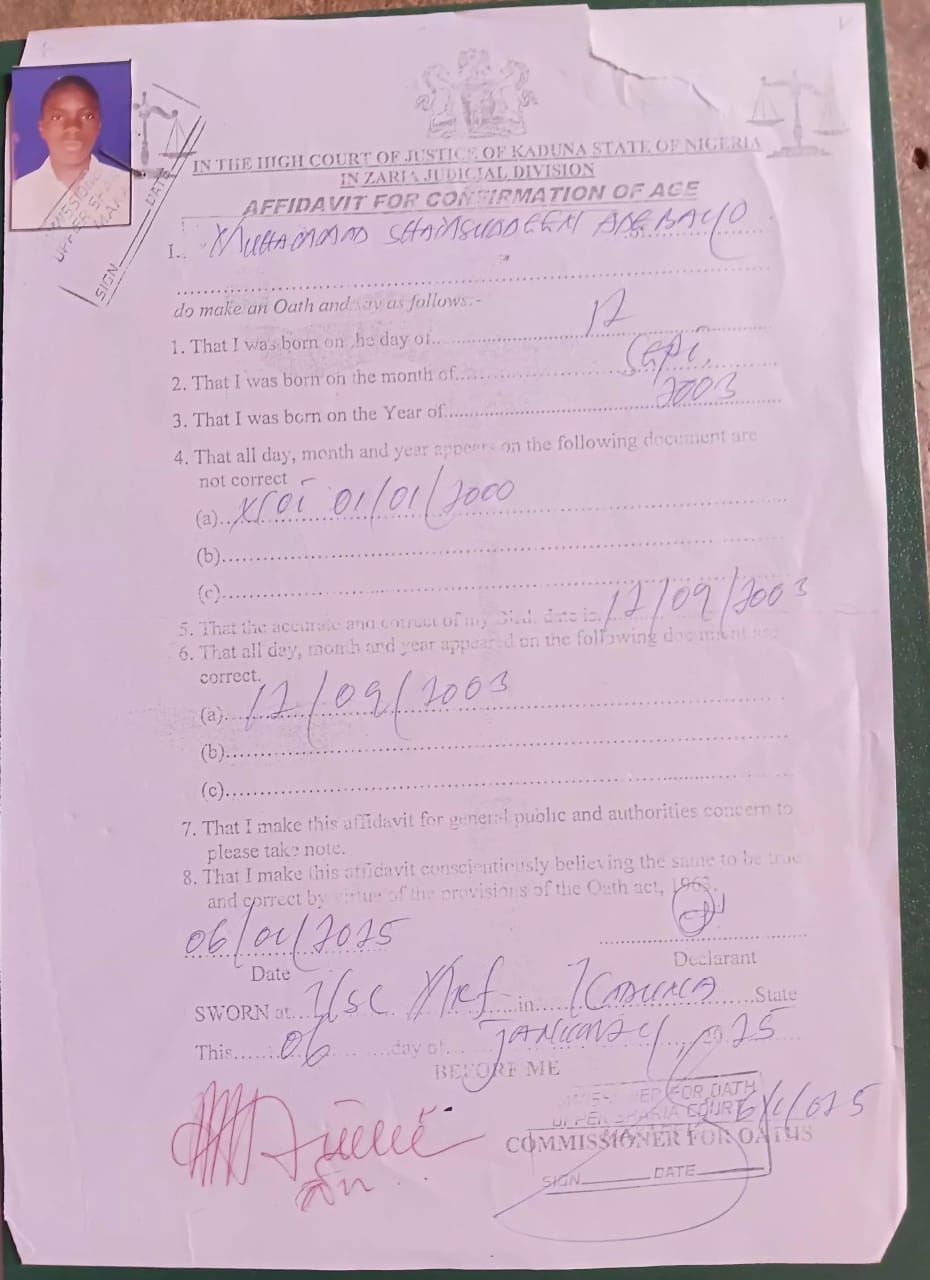 IN THE HIGH COURT OF JUSTICE OF KADUNA STATE OF NIGERIA
IN ZARIA JUDICIAL DIVISION
AFFIDAVIT FOR CONFIRMATION OF AGE
I.. MUHAMMAD SHAMSUDDEEN ADEBAYO
do make an Oath and say as follows:-
1. That I was born on the day of 12
2. That I was born on the month of SEPT.
3. That I was born on the Year of 2003
4. That all day, month and year appears on the following document are
not correct
(a) 01/01/2000
(b)
(c)
5. That the accurate and correct of my Bird. date is 12/09/2003
6. That all day, month and year appeared on the following document are
correct.
(a) 12/09/2003
(b)
(c)
7. That I make this affidavit for general public and authorities concern to
please take note.
8. That I make this affidavit conscientiously believing the same to be true
and correct by virtue of the provisions of the Oath act, 1963.
06/01/2025
Date
Declarant
SWORN at USC in KADUNA State
This 06 day of JANUARY, 2025
BEFORE ME
FOR OATH
UPPER SHARIA COURT
COMMISSIONER FOR OATHS
SIGN DATE
SIGN DATE